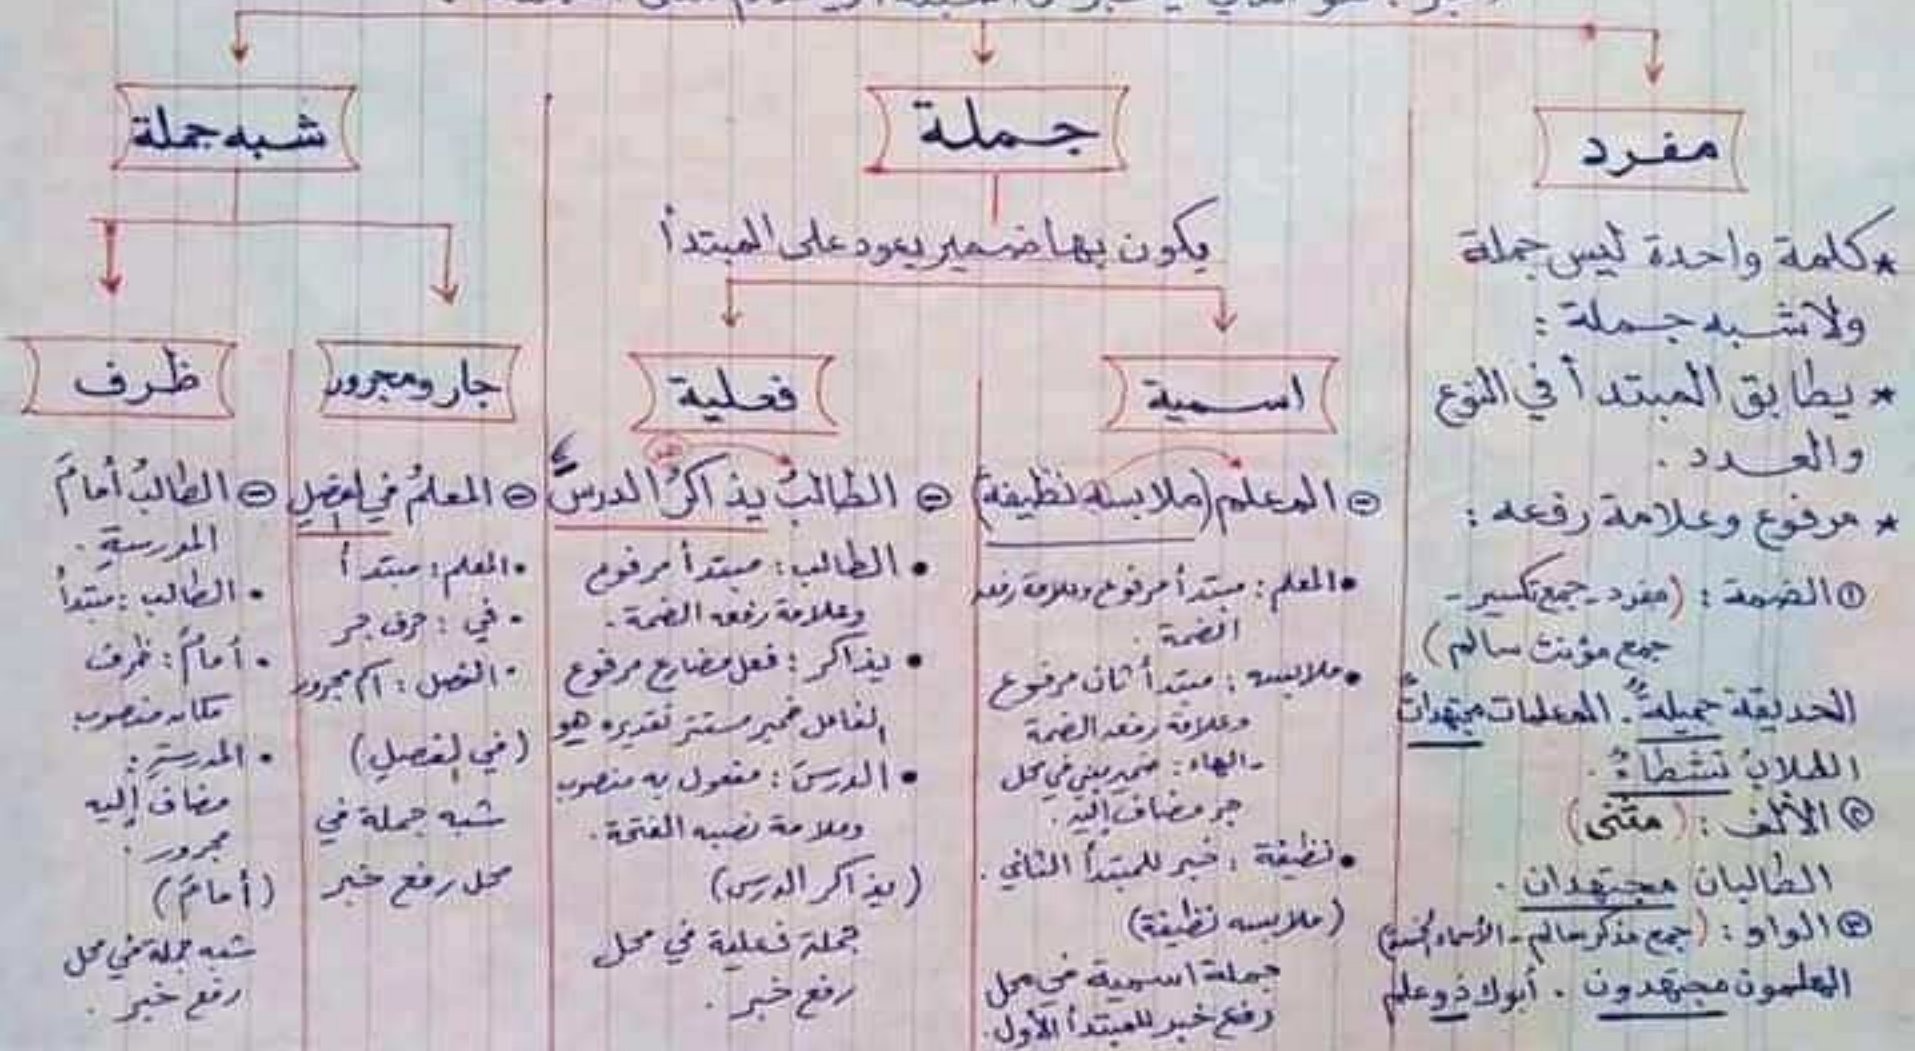 مفرد
جملة
شبه جملة
* كلمة واحدة ليس جملة
ولا شبه جملة :
* يطابق المبتدأ في النوع
والعدد .
* مرفوع وعلامة رفعه :
① الضمة : (مفرد - جمع تكسير -
جمع مؤنث سالم)
الحديقة جميلةٌ . المعلمات مجتهداتٌ
الطلابُ نشطاءٌ .
② الألف : (مثنى)
الطالبان مجتهدان .
③ الواو : (جمع مذكر سالم - الأسماء الخمسة)
المعلمون مجتهدون . أبوك ذو علم
يكون بها ضمير يعود على المبتدأ
اسمية
⊖ المعلم (ملابسه نظيفة)
• المعلم : مبتدأ مرفوع وعلامة رفعه
الضمة .
• ملابسه : مبتدأ ثان مرفوع
وعلامة رفعه الضمة
- الهاء : ضمير مبني في محل
جر مضاف إليه .
• نظيفة : خبر للمبتدأ الثاني .
(ملابسه نظيفة)
جملة اسمية في محل
رفع خبر للمبتدأ الأول .
فعلية
⊖ الطالبُ يذاكرُ الدرسَ
• الطالب : مبتدأ مرفوع
وعلامة رفعه الضمة .
• يذاكر : فعل مضارع مرفوع
الفاعل ضمير مستتر تقديره هو
• الدرسَ : مفعول به منصوب
وعلامة نصبه الفتحة .
(يذاكر الدرس)
جملة فعلية في محل
رفع خبر .
جار ومجرور
⊖ المعلمُ في الفصلِ
• المعلم : مبتدأ
• في : حرف جر
• الفصل : اسم مجرور
(في الفصلِ)
شبه جملة في
محل رفع خبر
ظرف
⊖ الطالبُ أمامَ
المدرسةِ .
• الطالب : مبتدأ
• أمامَ : ظرف
مكان منصوب
• المدرسةِ :
مضاف إليه
مجرور .
(أمامَ)
شبه جملة في محل
رفع خبر .